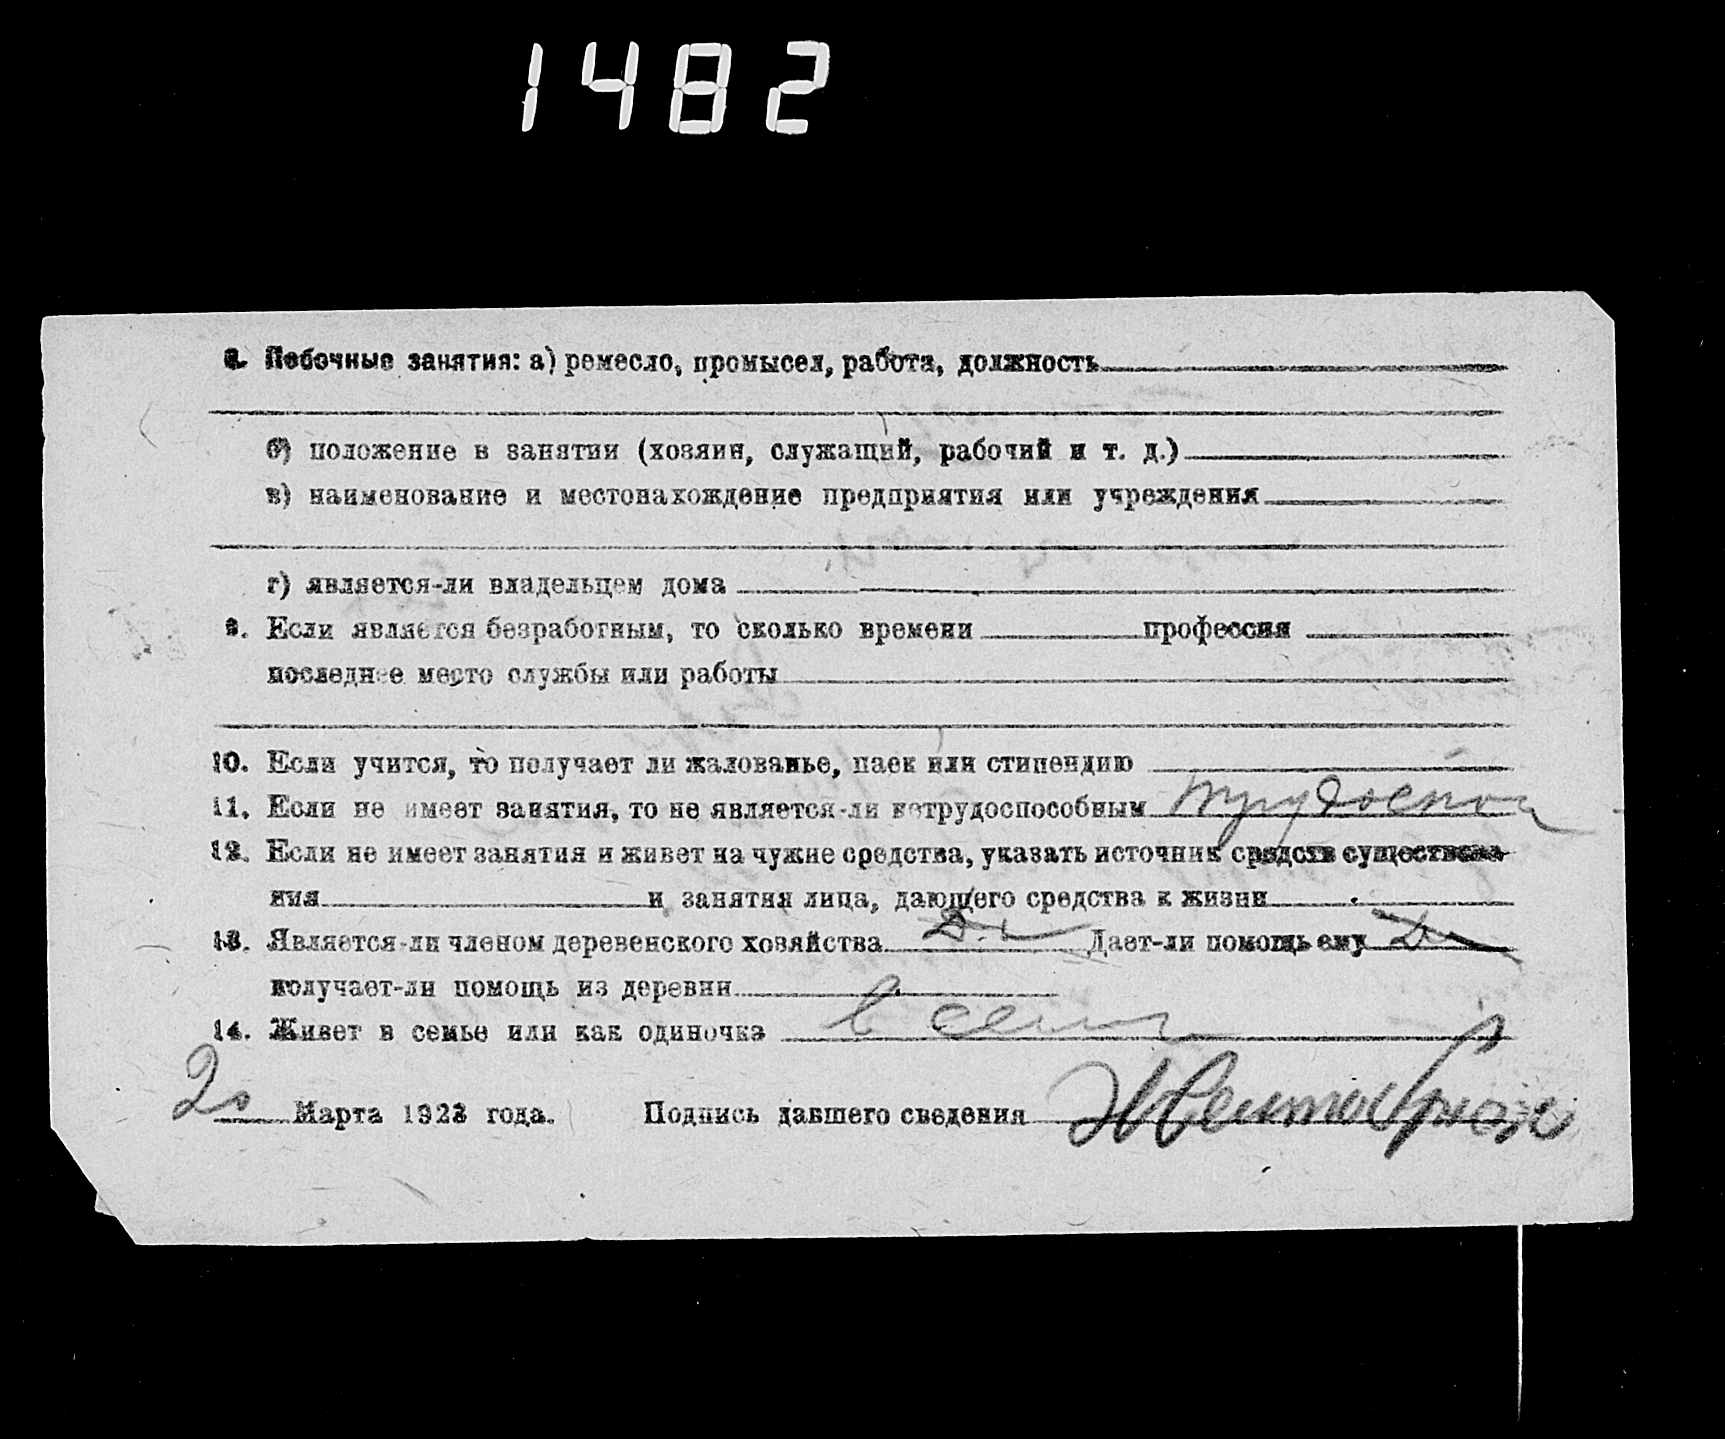 1482
8. Побочные занятия: а) ремесло, промысел, работа, должность
б) положение в занятии (хозяин, служащий, рабочий и т. д.)
в) наименование и местонахождение предприятия или учреждения
г) является-ли владельцем дома
9. Если является безработным, то сколько времени профессия
последнее место службы или работы
10. Если учится, то получает ли жалованье, паек или стипендию
11. Если не имеет занятия, то не является-ли нетрудоспособным трудоспос
12. Если не имеет занятия и живет на чужие средства, указать источник средств существова
ния и занятия лица, дающего средства к жизни
13. Является-ли членом деревенского хозяйства Дает-ли помощь ему
получает-ли помощь из деревни
14. Живет в семье или как одиночка в семье
20 Марта 1923 года. Подпись давшего сведения